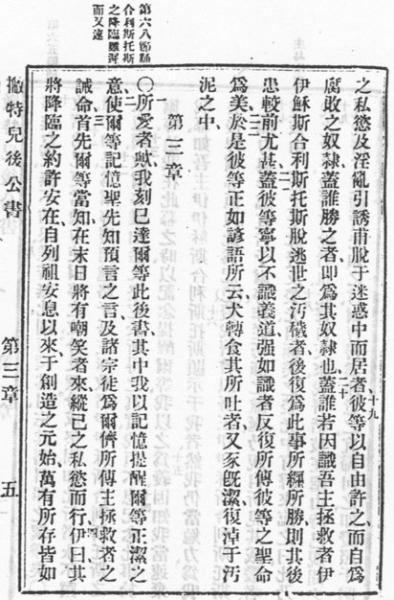 第六八節論
合利斯托斯
之降臨雖河
而又速
之私慾及淫亂引誘甫脫于迷惑中而居者、十九彼等以自由許之、而自爲
腐敗之奴隸、蓋誰勝之者、即爲其奴隸也、二十蓋誰若因識吾主拯救者伊
伊穌斯合利斯托斯、脫逃世之汚穢者、後復爲此事所纏所勝、則其後
患較前尤甚、二一蓋彼等寧以不識義道、强如識者反復所傳彼等之聖命
爲美、二二於是彼等正如諺語所云、犬轉食其所吐者、又豕旣潔、復淖于汚
泥之中、
第三章
〇一所愛者歟、我刻已達爾等此後書、其中我以記憶提醒爾等正潔之
意、二使爾等記憶聖先知預言之言、及諸宗徒爲爾儕所傳主拯救者之
誡命、三首先爾等當知、在末日將有嘲笑者來、縱己之私慾而行、四伊曰、其
將降臨之約許安在、自列祖安息以來、于創造之元始、萬有所存皆如
撇特兒後公書 第三章 五